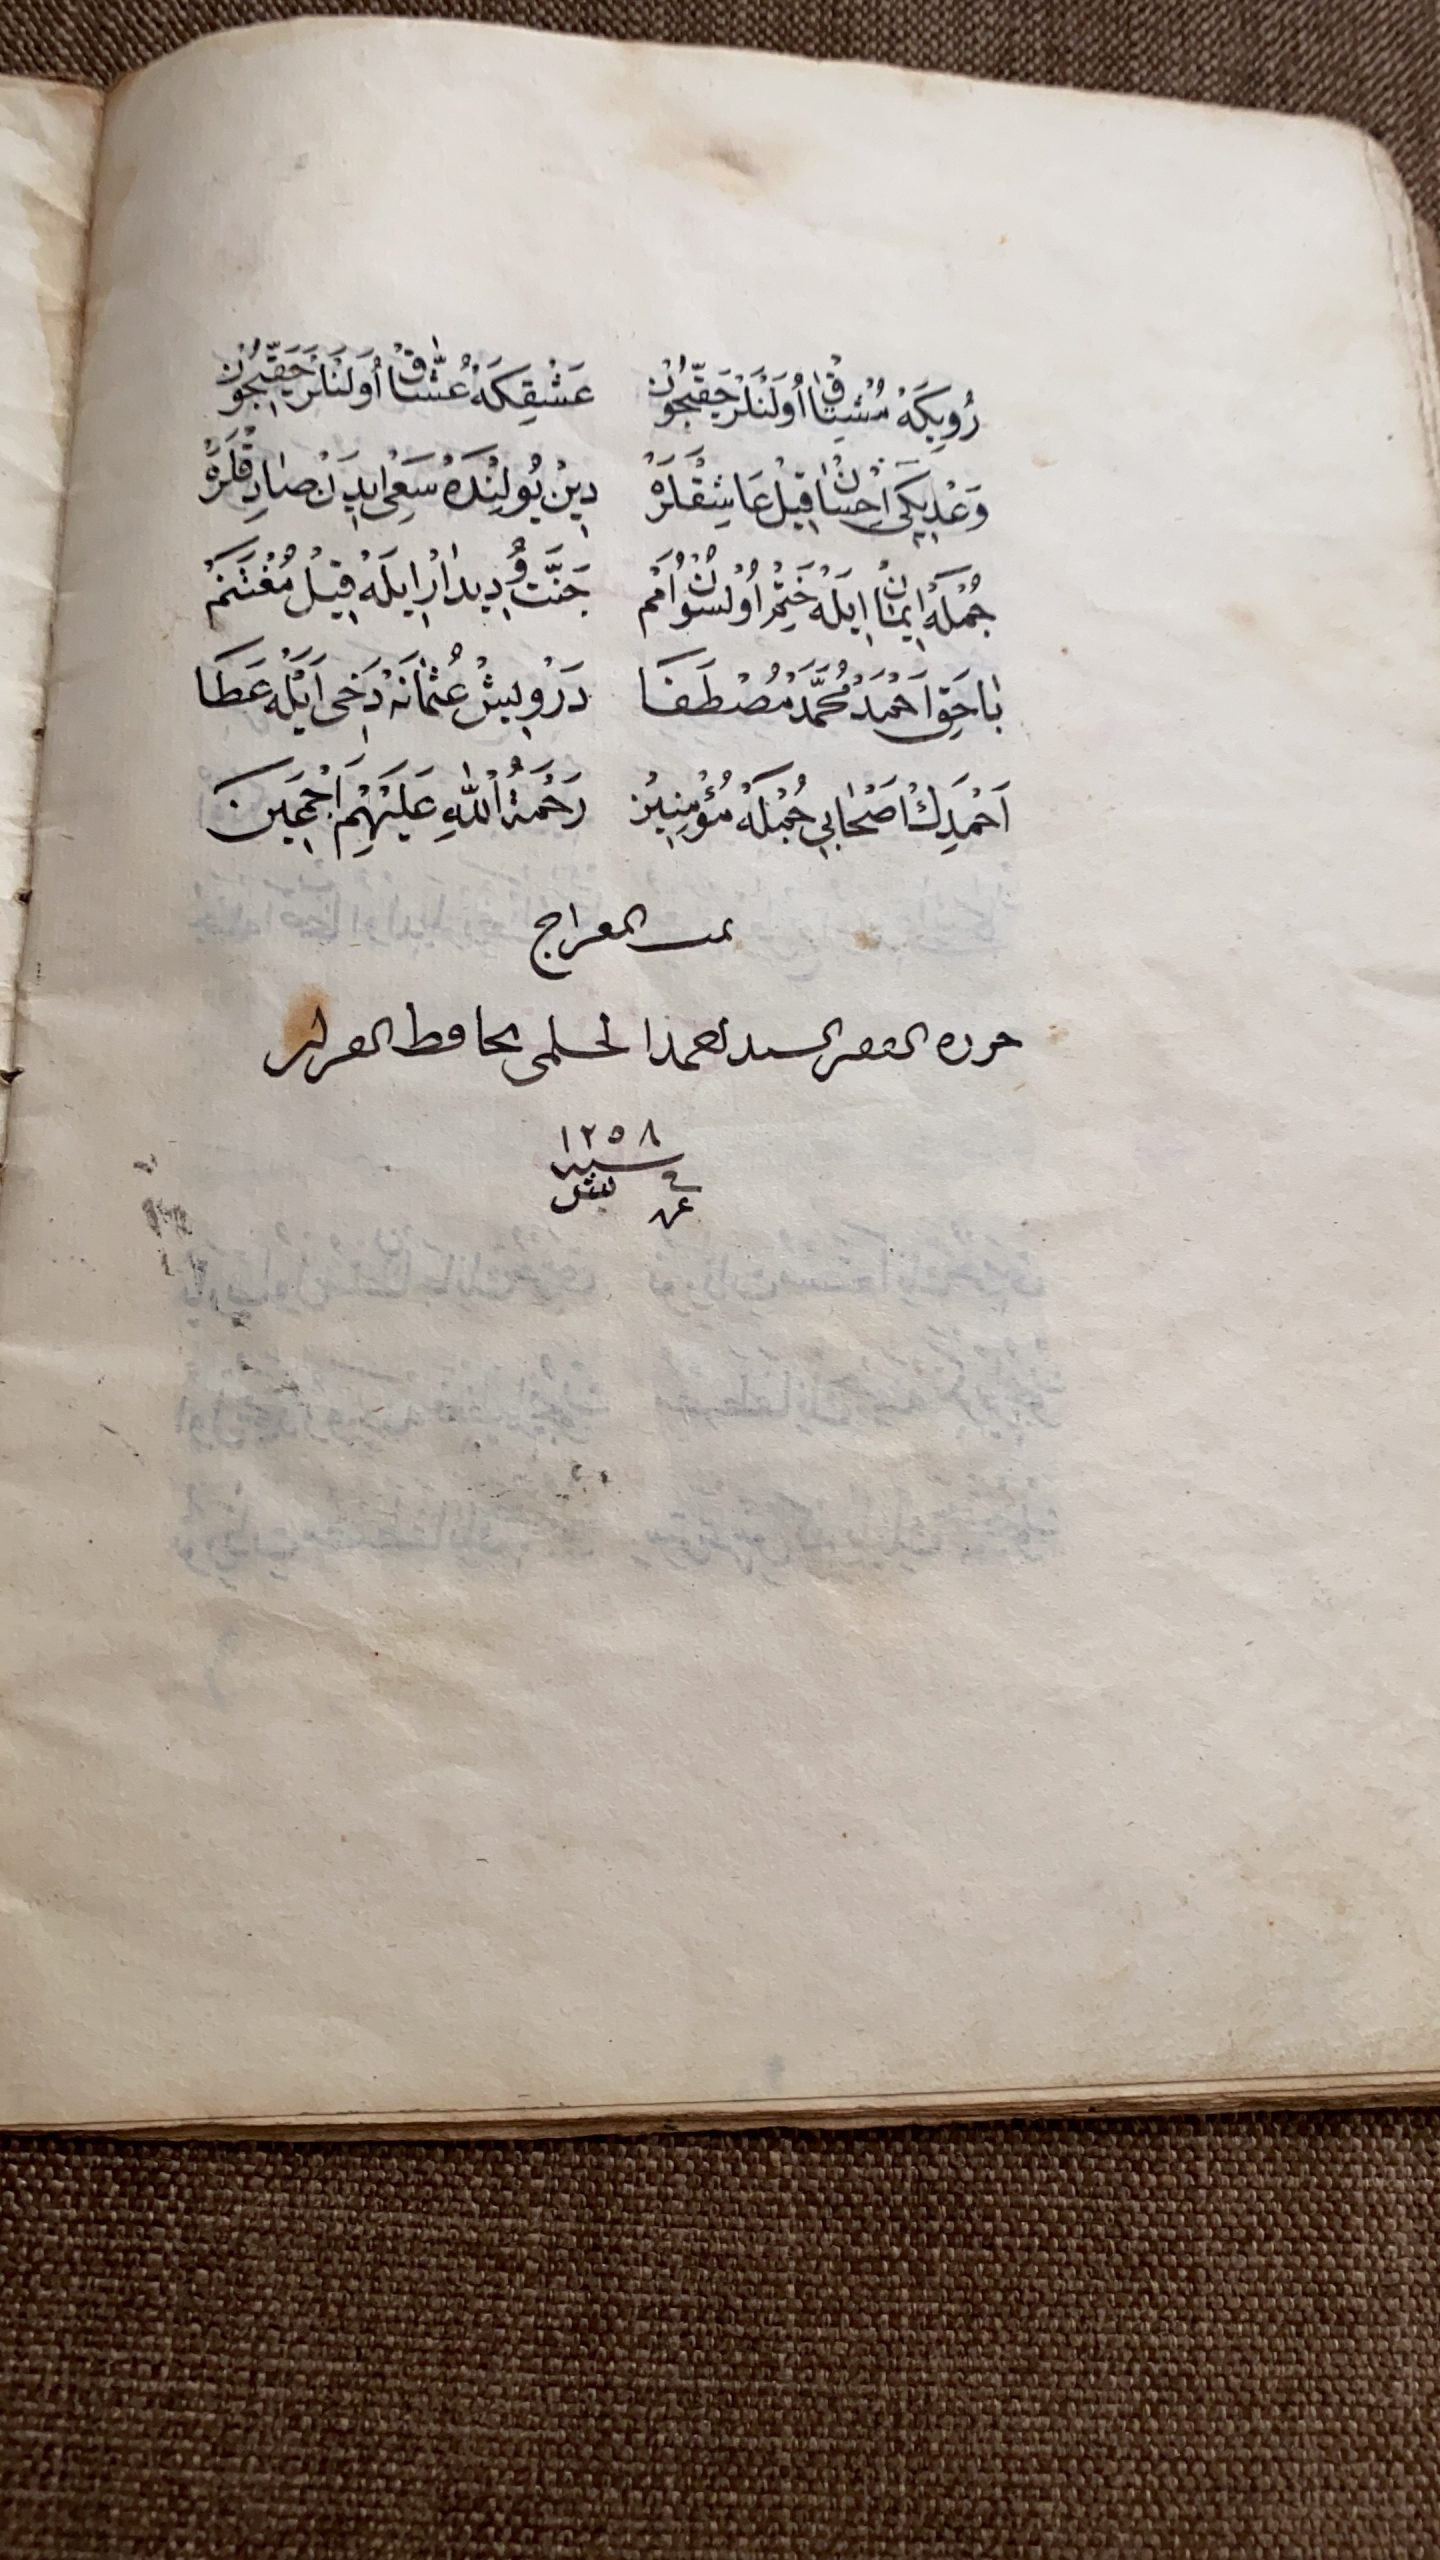 رُويِكَهْ مُشْتٰاقْ اُولَنْلَرْ حَقِّيچُونْ عَشْقِكَهْ عُشّٰاقْ اُولَنْلَرْ حَقِّيچُونْ
وَعْدِيكِى اِحْسٰانْ قِيلْ عَاشِقْلَرَهْ دِينْ يُولِنْدَهْ سَعْى ايدَنْ صٰادِقْلَرَهْ
جُمْلَهْ ايمٰانْ اِيلَهْ خَتْمْ اُولْسُونْ اُمَمْ جَنَّتْ وُ دِيدٰارْ اِيلَهْ قِيلْ مُغْتَنَمْ
بٰا حَقِ اَحْمَدْ مُحَمَّدْ مُصْطَفَا دَرْوِيشْ عُثْمٰانَهْ دَخِى اَيْلَهْ عَطَا
اَحْمَدِكْ اَصْحٰابِى جُمْلَهْ مُؤْمِنِينْ رَحْمَةُ اللّٰهِ عَلَيْهِمْ اَجْمَعِينَ
تمت المعراج
حرره الفقير السيد احمد الحلمى بحافظ القرا
١٢٥٨
سنه